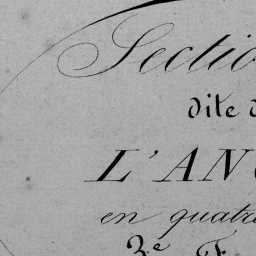 Sectio
dite d
L'AN
en quatr
3e F